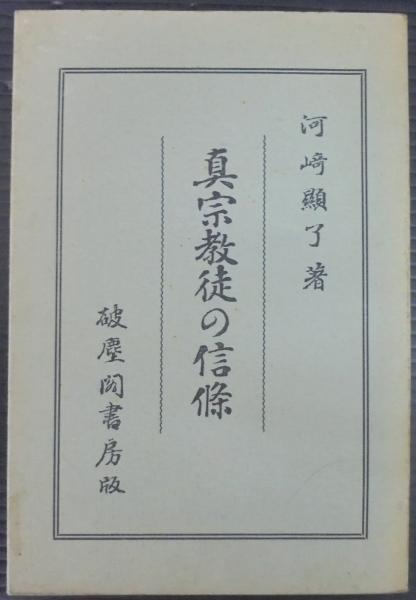 河﨑顯了著
真宗教徒の信條
破塵閣書房版